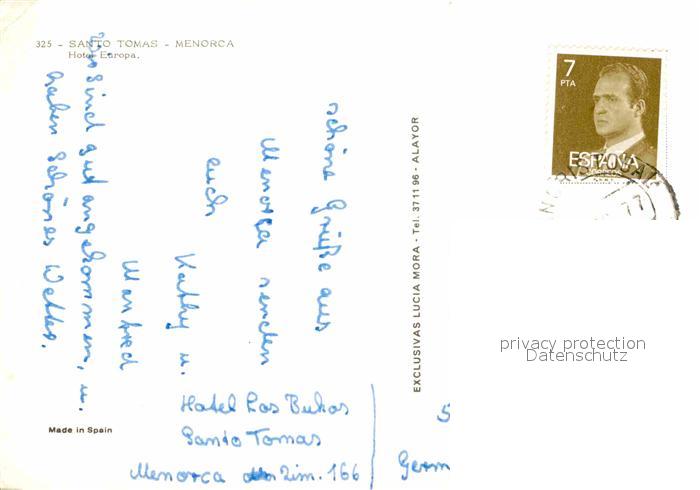 325 - SANTO TOMAS - MENORCA
Hotel Europa.
7
PTA
ESPAÑA
77
schöne Grüße aus
Menorca senden
euch
Kathy u.
Manfred
Wir sind gut angekommen, u.
haben schönes Wetter.
Hotel Los Bukos
Santo Tomas
Menorca Zim. 166
Germ
EXCLUSIVAS LUCIA MORA - Tel. 37 11 96 - ALAYOR
Made in Spain
privacy protection
Datenschutz